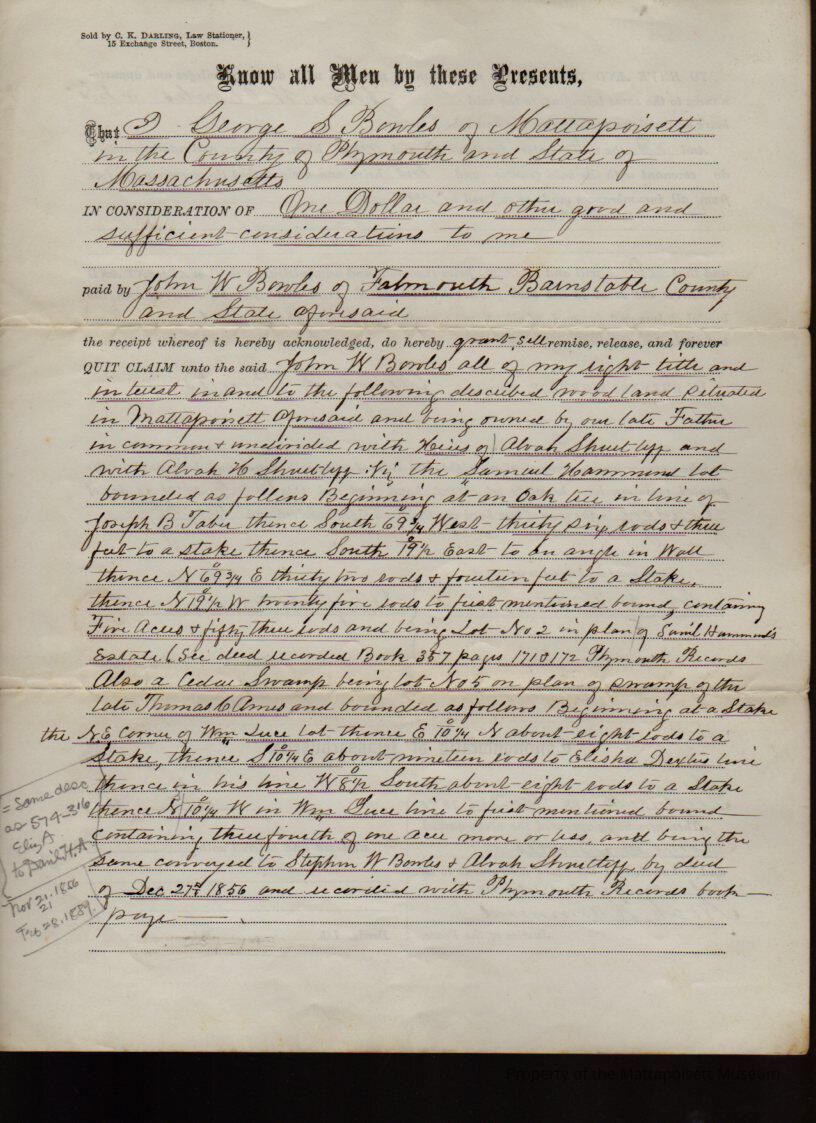 Sold by C. K. DARLING, Law Stationer,
15 Exchange Street, Boston.
Know all Men by these Presents,
That I George S Bowles of Mattapoisett
in the County of Plymouth and State of
Massachusetts
IN CONSIDERATION OF One Dollar and other good and
sufficient considerations to me
paid by John W Bowles of Falmouth Barnstable County
and State aforesaid
the receipt whereof is hereby acknowledged, do hereby grant, sell remise, release, and forever
QUIT CLAIM unto the said John W Bowles all of my right title and
interest in and to the following described wood land situated
in Mattapoisett aforesaid and being owned by our late Father
in common & undivided with Heirs of Alvah Shurtliff and
with Alvah H Shurtliff the "Samuel Hammond lot
bounded as follows Beginning at an Oak tree in line of
Joseph B Taber thence South 69 3/4 West thirty six rods & three
feet to a stake thence South 19 1/2 East to an angle in Wall
thence N 69 3/4 E thirty two rods & fourteen feet to a Stake,
thence N 19 1/2 W twenty five rods to first mentioned bound, containing
Five Acres & fifty three rods and being Lot No 2 in plan of Saml Hammond's
Estate (See deed recorded Book 357 pages 171 & 172 Plymouth Records
Also a Cedar Swamp being lot No 5 on plan of swamp of the
late Thomas C Ames and bounded as follows Beginning at a Stake
the N.E Corner of Wm Luce lot thence E 10 1/4 N about eight rods to a
Stake, thence S 10 1/4 E about nineteen rods to Elisha Dexters line
thence in his line W 8 1/2 South about eight rods to a Stake
thence N 10 1/4 W in Wm Luce line to first mentioned bound
containing three fourth of one acre more or less, and being the
same conveyed to Stephen W Bowles & Alvah Shurtliff by deed
of Dec 27th 1856 and recorded with Plymouth Records book —
page —
= Same desc
as 574-316
Eliz A
to H.A.
Nov 21, 1866
21
Feb 28, 1889
Property of the Mattapoisett Museum